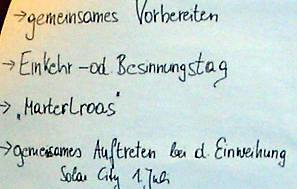 → gemeinsames Vorbereiten
→ Einkehr- od. Besinnungstag
→ „Marterlroas"
→ gemeinsames Auftreten bei d. Einweihung
Solar City 1. Juli